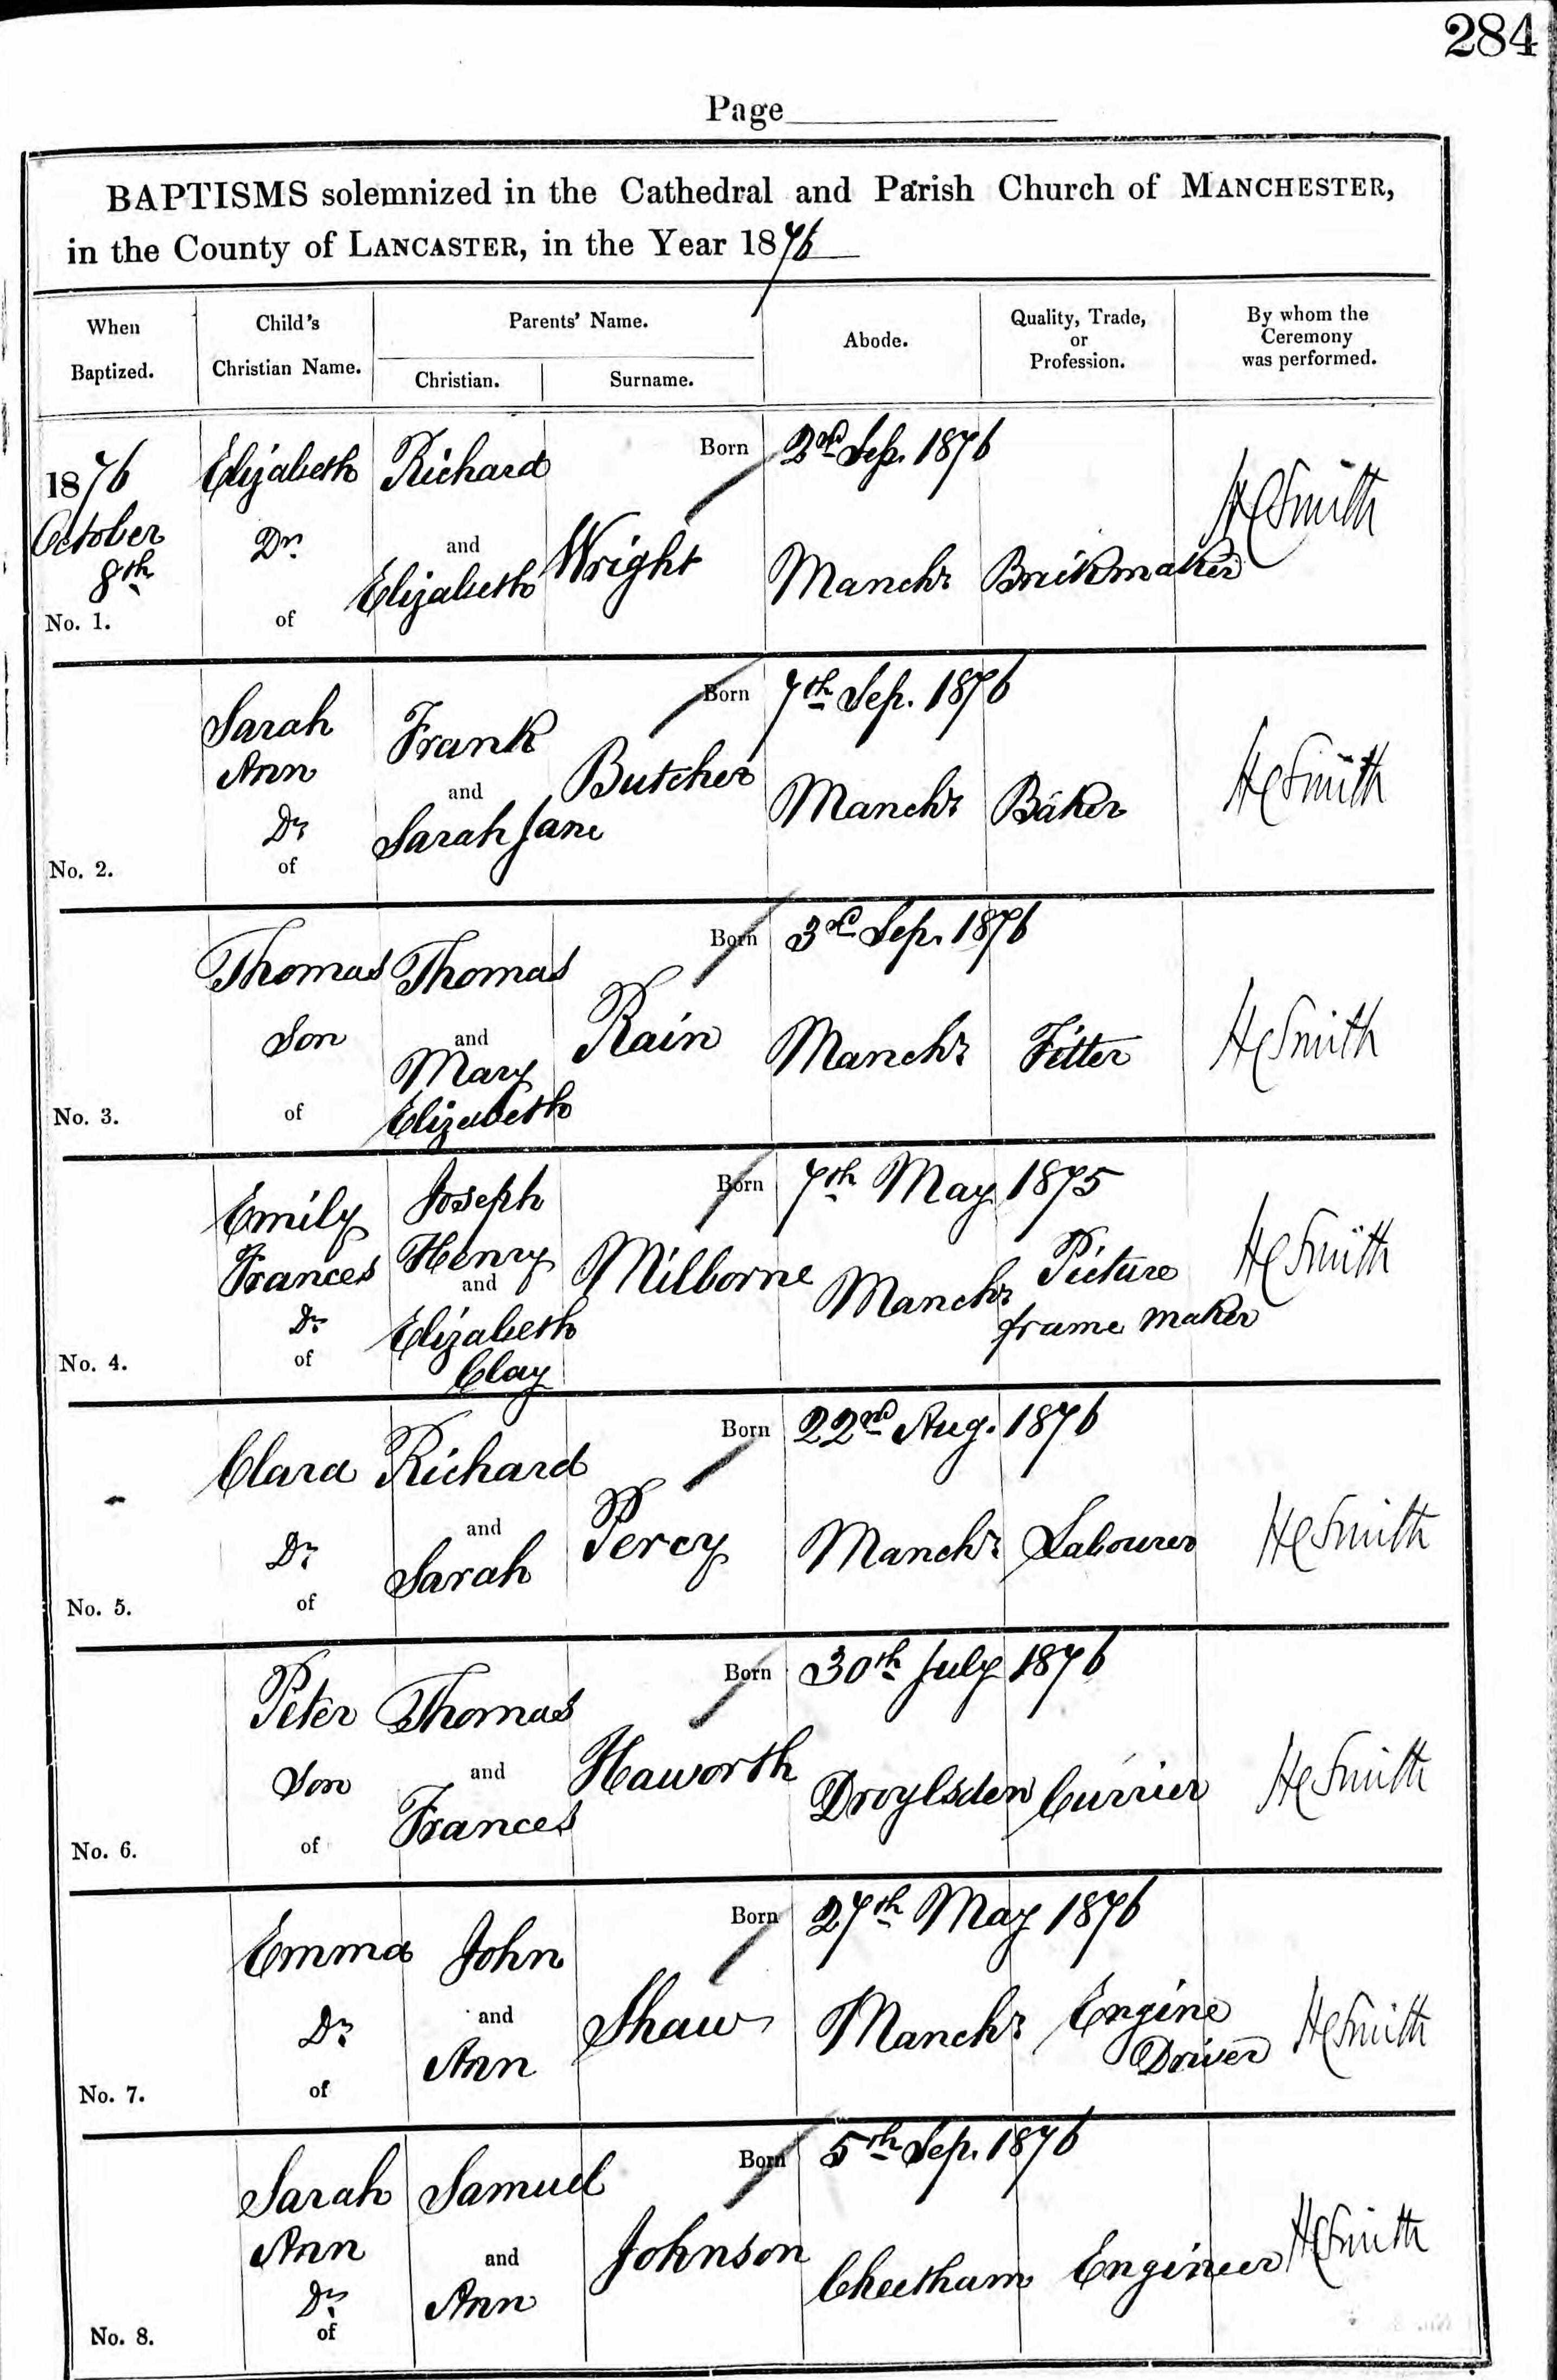 284
Page
BAPTISMS solemnized in the Cathedral and Parish Church of MANCHESTER,
in the County of LANCASTER, in the Year 1876
When Baptized.
Child's Christian Name.
Parents' Name.
Christian.
Surname.
Abode.
Quality, Trade, or Profession.
By whom the Ceremony was performed.
Born 2nd Sep. 1876
1876 Elizabeth Richard
October Dr and Wright Manchr Brickmaker HCSmith
8th Elizabeth
No. 1. of
Born 7th Sep. 1876
Sarah Frank
Ann and Butcher Manchr Baker HCSmith
Dr Sarah Jane
No. 2. of
Born 3rd Sep. 1876
Thomas Thomas
Son and Rain Manchr Fitter HCSmith
Mary
No. 3. of Elizabeth
Born 7th May 1875
Emily Joseph
Frances Henry Milborne Manchr Picture HCSmith
and frame maker
Dr Elizabeth
No. 4. of Clay
Born 22nd Aug. 1876
Clara Richard
Dr and Percy Manchr Labourer HCSmith
Sarah
No. 5. of
Born 30th July 1876
Peter Thomas
Son and Haworth Droylsden Currier HCSmith
Frances
No. 6. of
Born 27th May 1876
Emma John
Dr and Shaw Manchr Engine HCSmith
Ann Driver
No. 7. of
Born 5th Sep. 1876
Sarah Samuel
Ann and Johnson Cheetham Engineer HCSmith
Dr Ann
No. 8. of